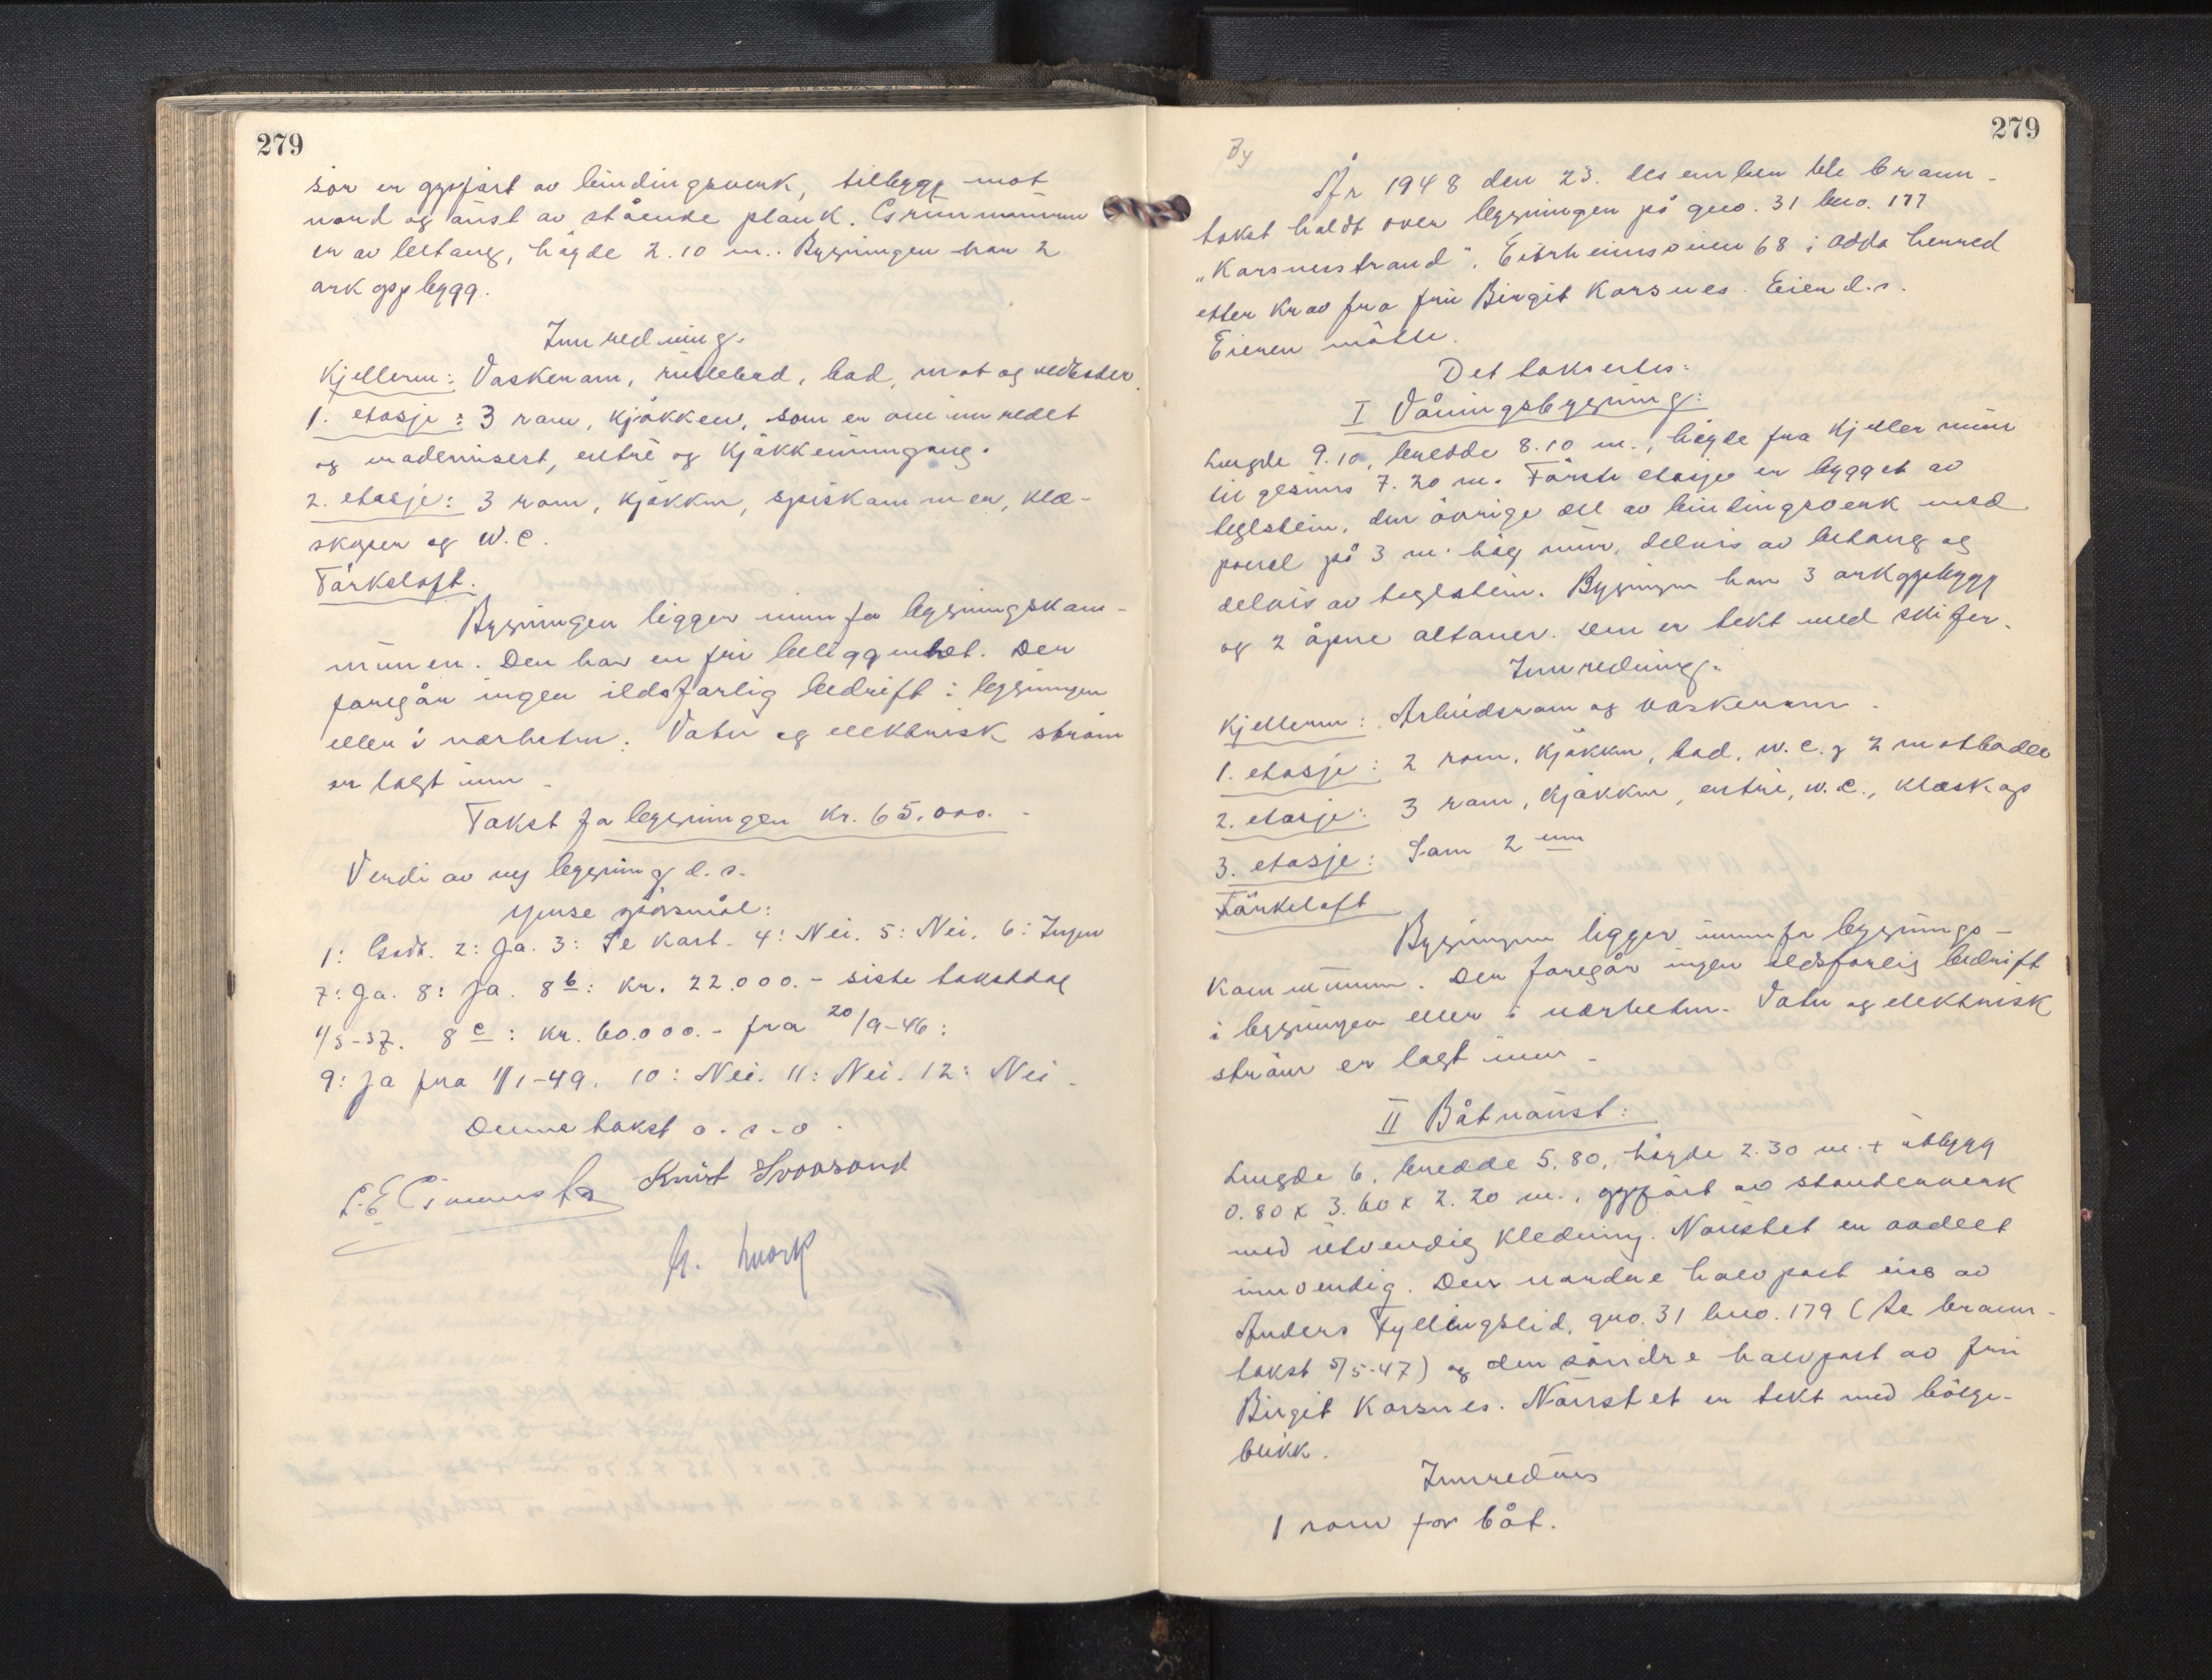 279
sör er oppfört av bindingsverk, tilbygg mot
nord og aust av stående plank. Grunnmuren
er av betong, högde 2.10 m.. Bygningen har 2
ark oppbygg.
Innredning.
Kjelleren: Vaskerom, rullebod, bad, mat og vedboder.
1. etasje: 3 rom, kjökken, som er ominnredet
og modernisert, entré og kjökkeninngang.
2. etasje: 3 rom, kjökken, spiskammer, kle-
skaper og W.C.
Törkeloft.
Bygningen ligger innen for bygningskom-
munen. Den har en fri beliggenhet. Der
foregår ingen ildsfarlig bedrift i bygningen
eller i nærheten. Vatn og elektrisk ström
er lagt inn.
Takst for bygningen kr. 65.000.-
Verdi av ny bygning d.s.
Ymse spörsmål:
1: Godt. 2: Ja. 3: Se kart. 4: Nei. 5: Nei. 6: Ingen
7: Ja. 8: Ja. 8b: Kr. 22.000.- siste takstdag
1/5-37. 8c: Kr. 60.000.- fra 20/9-46:
9: Ja fra 1/1-49. 10: Nei. 11: Nei. 12: Nei.
Denne takst o.s.v.
Knut Svoasand
279
By
År 1948 den 23. desember ble brann-
takst haldt over bygningen på gno. 31 bno. 177
"Karsnesstrand", Eitrheimsveien 68 i Odda herred
etter krav fra fru Birgit Karsnes. Eier d.s.
Eieren mötte.
Det taksertes:
I Våningsbygning:
Lengde 9.10, bredde 8.10 m., högde fra kjeller mur
til gesims 7.20 m. Förste etasje er bygget av
teglstein, den övrige del av bindingsverk med
panel på 3 m. hög mur, delvis av betong og
delvis av teglstein. Bygningen har 3 arkoppbygg
og 2 åpne altaner. Den er tekt med skifer.
Innredning.
Kjelleren: Arbeidsrom og vaskerom.
1. etasje: 2 rom, kjökken, bad, w.c. og 2 matboder
2. etasje: 3 rom, kjökken, entré, w.c., kleskap
3. etasje: Som 2 enn
Törkeloft
Bygningen ligger innen for bygnings-
kommunen. Der foregår ingen ildsfarlig bedrift
i bygningen eller i nærheten. Vatn og elektrisk
ström er lagt inn.
II Båtnaust:
Lengde 6, bredde 5.80, högde 2.30 m. + utbygg
0.80 x 3.60 x 2.20 m., oppfört av stenderverk
med utvendig kledning. Naustet er avdelt
innvendig. Den nordre halvpart eies av
Anders Fyllingslid, gno. 31 bno. 179 (se brann-
takst 5/5-47) og den söndre halvpart av fru
Birgit Karsnes. Naustet er tekt med bölge-
blikk.
Innredning
1 rom for båt.